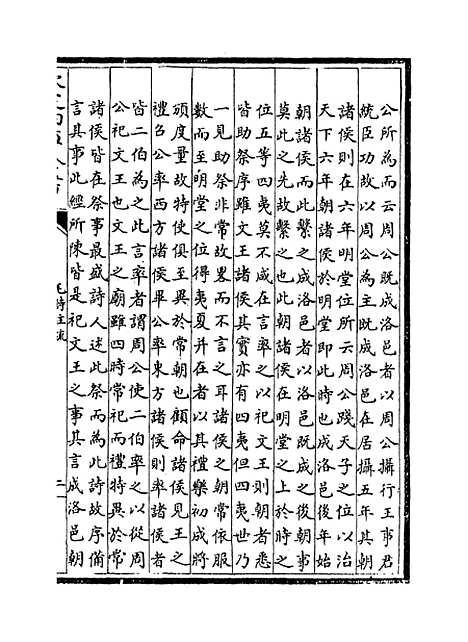 公所為而云周公既成洛邑者以周公攝行王事君
統臣功故以周公為主既成洛邑在居攝五年其朝
諸侯則在六年明堂位所云周公踐天子之位以治
天下六年朝諸侯於明堂即此時也成洛邑後年始
朝諸侯而此繫之成洛邑者以洛邑既成之後朝事
莫此之先故繫之也此朝諸侯在明堂之上於時之
位五等四夷莫不咸在言率之以祀文王則朝者悉
皆助祭序雖文王諸侯其實亦有四夷但四夷世乃
一見助祭非常故畧而不言之耳諸侯之朝常依服
數而至明堂之位得夷夏并在者以其禮樂初成將
頒度量故特使俱至異於常朝也顧命諸侯見王之
禮召公率西方諸侯畢公率東方諸侯則率諸侯者
皆二伯為之此言率者謂周公使二伯率之以從周
公祀文王也文王之廟雖四時常祀而禮特異於常
諸侯皆在祭事最盛詩人述此祭而為此詩故序備
言其事此經所陳皆是祀文王之事其言成洛邑朝
毛詩註疏